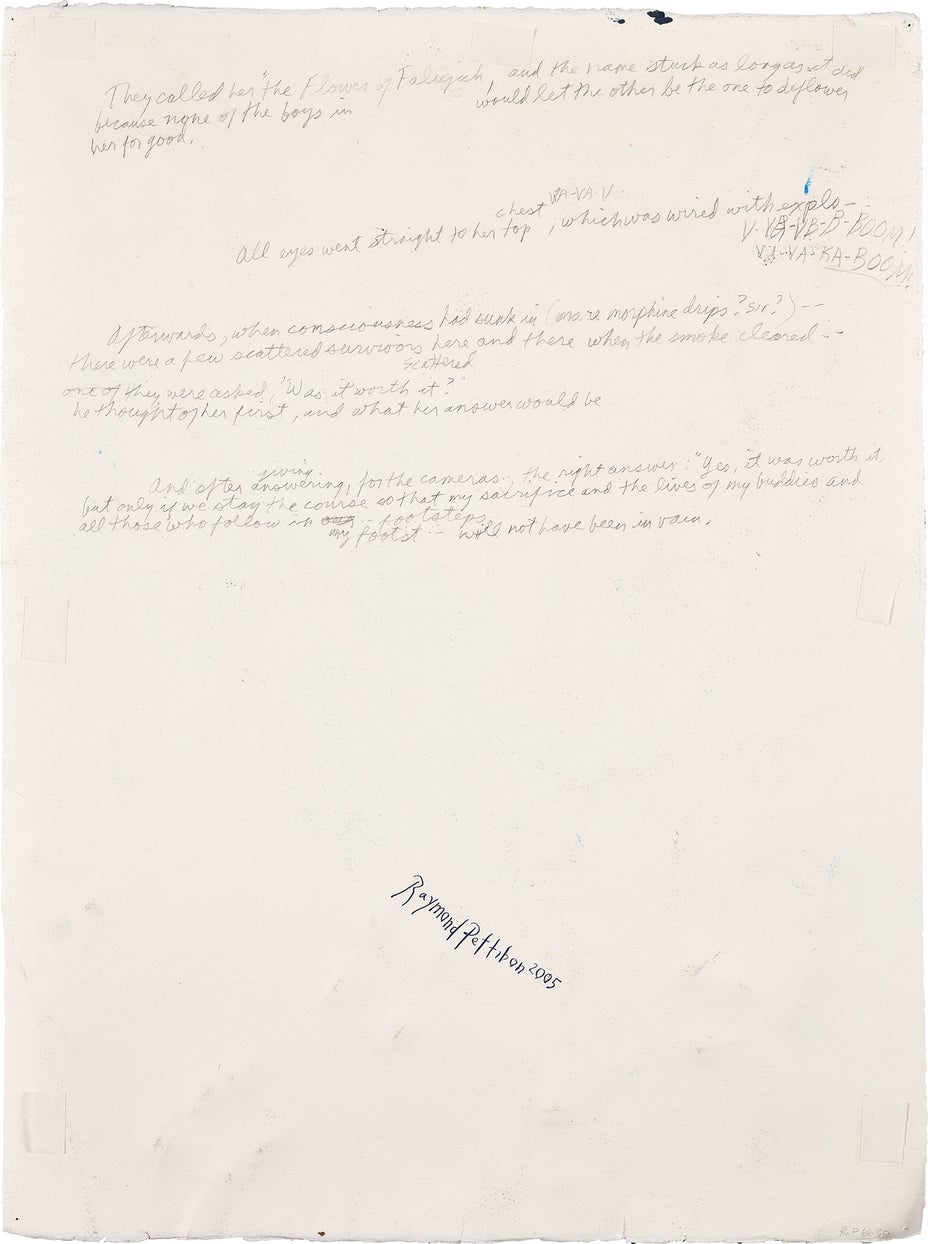 They called her "the Flower of Falujah, and the name stuck as long as it did
because none of the boys in would let the other be the one to deflower
her for good.
chest VA-VA-V
All eyes went straight to her top, which was wired with explo--
V-VB-VB-B-BOOM!
VA-VA-KA-BOOM!
Afterwards, when consciousness had sunk in (more morphine drips? Sir?) --
there were a few scattered survivors here and there when the smoke cleared --
scattered
one of they were asked, "Was it worth it?"
he thought of her first, and what her answer would be
giving
And after answering, for the cameras, the right answer: "Yes, it was worth it,
but only if we stay the course so that my sacrifice and the lives of my buddies and
all those who follow in our -- footsteps
my footst -- will not have been in vain.
Raymond Pettibon 2005